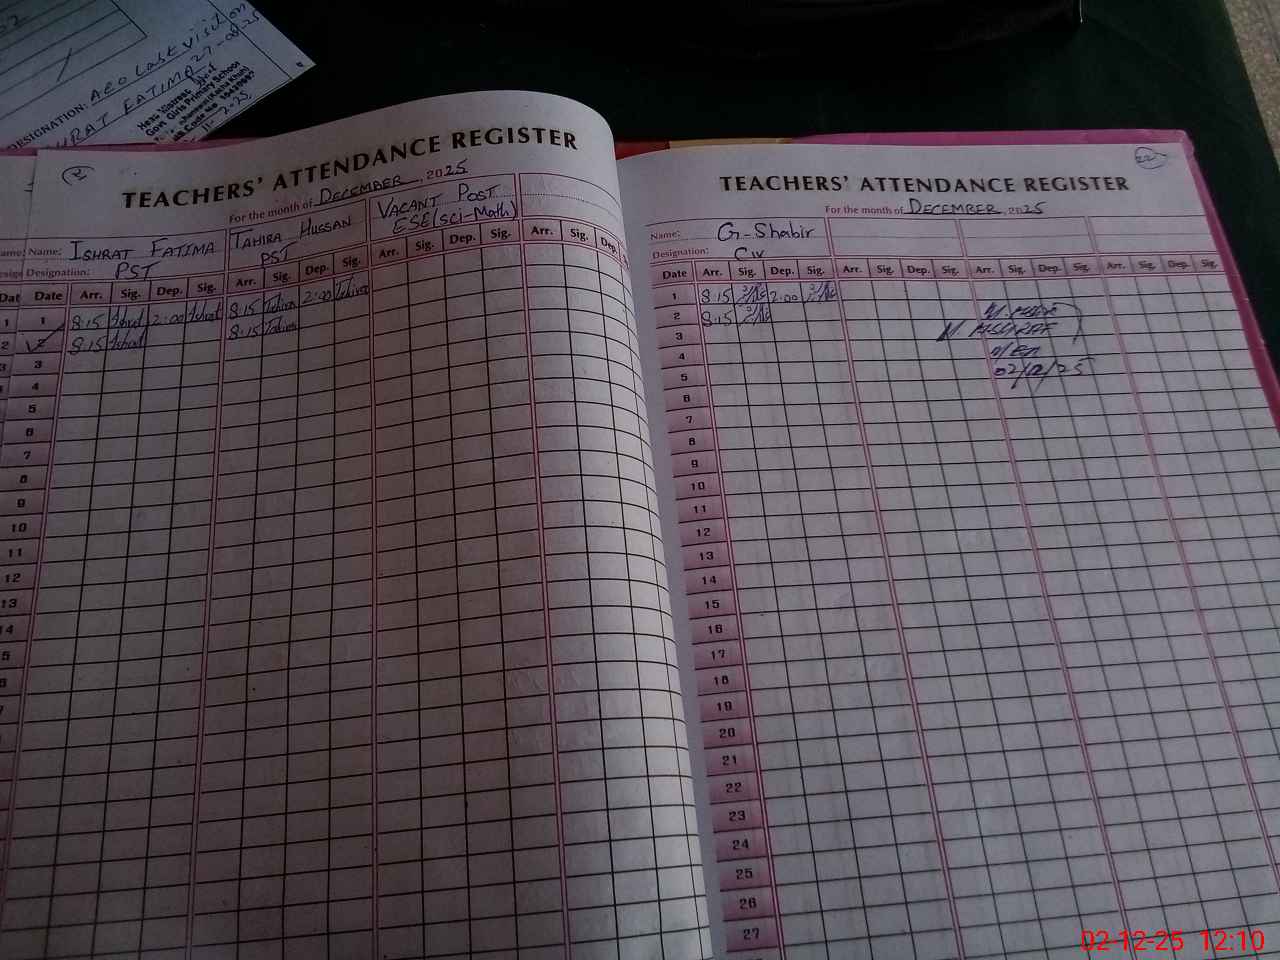 DESIGNATION: AEO Last Visit on
ISHRAT FATIMA 27-08-25
Head Mistress
Govt Girls Primary School
11-2-25
TEACHERS' ATTENDANCE REGISTER
For the month of DECEMBER, 2025
Name: ISHRAT FATIMA TAHIRA HUSSAN VACANT POST
Designation: PST PST ESE (sci-Math)
Date Arr. Sig. Dep. Sig. Arr. Sig. Dep. Sig. Arr. Sig. Dep. Sig. Arr. Sig. Dep.
1 8:15 Ishrat 2:00 Ishrat 8:15 Tahira 2:00 Tahira
2 8:15 Ishrat 8:15 Tahira
3
4
5
6
7
8
9
10
11
12
13
22
TEACHERS' ATTENDANCE REGISTER
For the month of DECEMBER, 2025
Name: G-Shabir
Designation: CIV
Date Arr. Sig. Dep. Sig. Arr. Sig. Dep. Sig. Arr. Sig. Dep. Sig. Arr. Sig. Dep. Sig.
1 8:15 2:00
2 8:15
3 M. ASHRAF
4 MEA
5 02/12/25
6
7
8
9
10
11
12
13
14
15
16
17
18
19
20
21
22
23
24
25
26
27
02-12-25 12:10